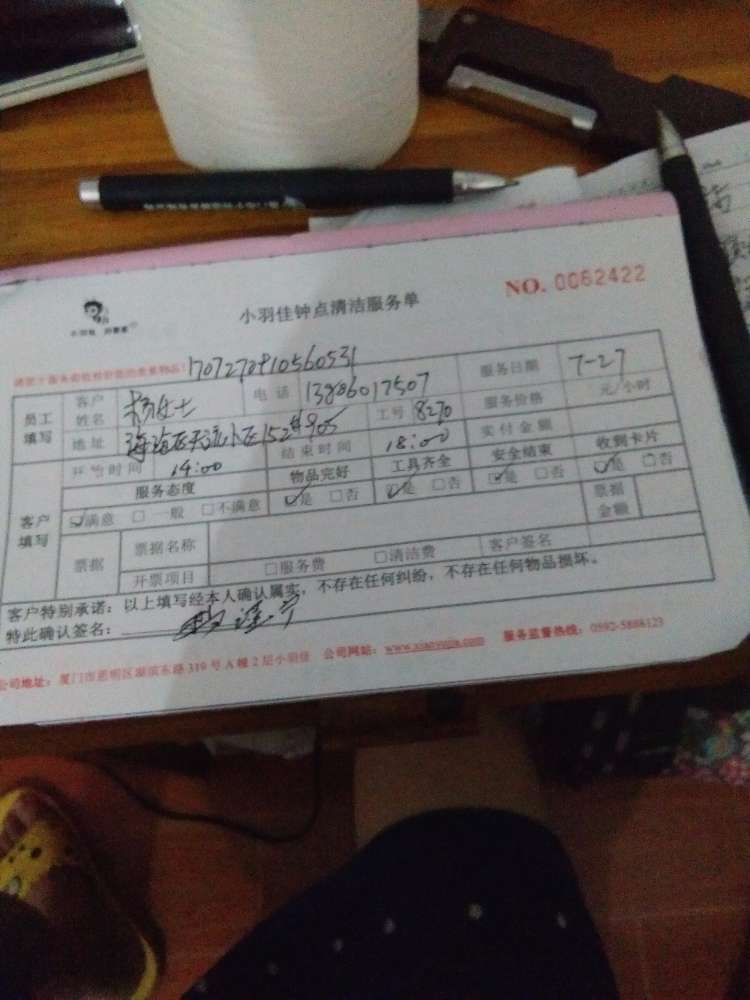 小羽佳钟点清洁服务单
NO. 0062422
170727
服务日期 7-27
员工填写 客户姓名 杨女士 电话 13806017507 服务价格 元/小时
地址 工号 8270 实付金额
开始时间 14:00 结束时间 18:00
客户填写 服务态度 物品完好 工具齐全 安全结束 收到卡片
☑满意 □一般 □不满意 ☑是 □否 ☑是 □否 ☑是 □否 ☑是 □否
票据 票据名称 票据金额
开票项目 □服务费 □清洁费 客户签名
客户特别承诺：以上填写经本人确认属实，不存在任何纠纷，不存在任何物品损坏。
特此确认签名：
公司地址：厦门市思明区湖滨东路319号A幢2层小羽佳 公司网站： 服务监督热线：